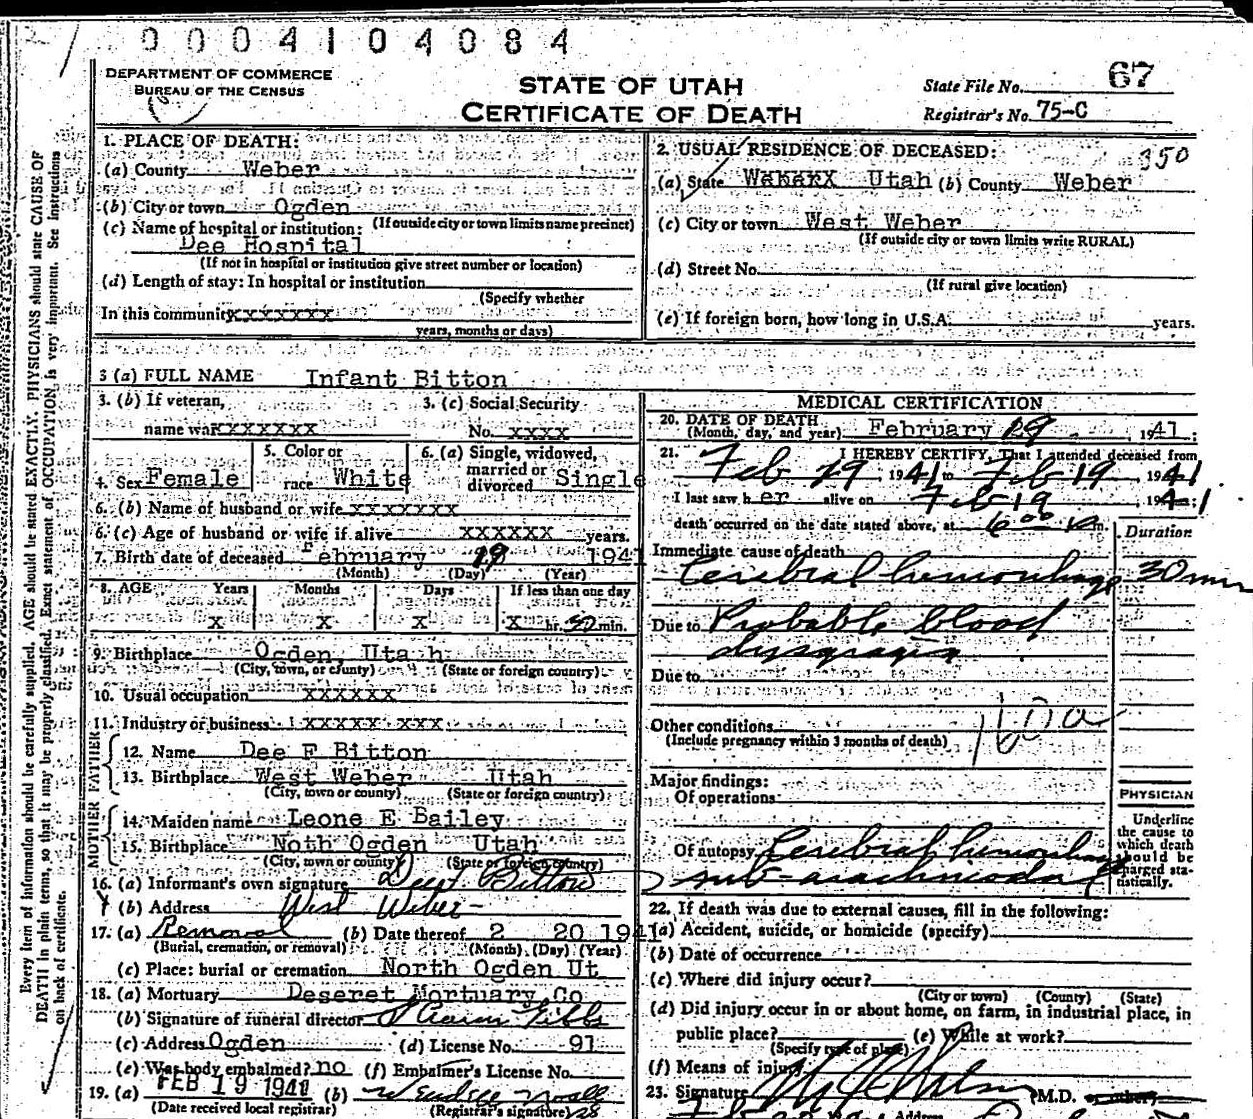 0004104084
DEPARTMENT OF COMMERCE
BUREAU OF THE CENSUS
STATE OF UTAH
CERTIFICATE OF DEATH
State File No. 67
Registrar's No. 75-C
Every item of information should be carefully supplied. AGE should be stated EXACTLY. PHYSICIANS should state CAUSE OF
DEATH in plain terms, so that it may be properly classified. Exact statement of OCCUPATION is very important. See instructions
on back of certificate.
1. PLACE OF DEATH:
(a) County Weber
(b) City or town Ogden
(If outside city or town limits name precinct)
(c) Name of hospital or institution:
Dee Hospital
(If not in hospital or institution give street number or location)
(d) Length of stay: In hospital or institution
(Specify whether
In this community xxxxxxx
years, months or days)
2. USUAL RESIDENCE OF DECEASED: 350
(a) State Utah (b) County Weber
(c) City or town West Weber
(If outside city or town limits write RURAL)
(d) Street No.
(If rural give location)
(e) If foreign born, how long in U.S.A. years.
3 (a) FULL NAME Infant Bitton
3. (b) If veteran,
name war xxxxxxx
3. (c) Social Security
No. xxxx
4. Sex Female
5. Color or
race White
6. (a) Single, widowed,
married or
divorced Single
6. (b) Name of husband or wife xxxxxxx
6. (c) Age of husband or wife if alive xxxxxx years.
7. Birth date of deceased February 19 1941
(Month) (Day) (Year)
8. AGE Years Months Days If less than one day
X X X X hr. min.
9. Birthplace Ogden Utah
(City, town, or county) (State or foreign country)
10. Usual occupation xxxxxx
11. Industry or business xxxxx xxx
FATHER
12. Name Dee F Bitton
13. Birthplace West Weber Utah
(City, town or county) (State or foreign country)
MOTHER
14. Maiden name Leone E Bailey
15. Birthplace Noth Ogden Utah
(City, town or county) (State or foreign country)
16. (a) Informant's own signature Bitton
(b) Address West Weber
17. (a) Removal (b) Date thereof 2 20 1941
(Burial, cremation, or removal) (Month) (Day) (Year)
(c) Place: burial or cremation North Ogden Ut
18. (a) Mortuary Deseret Mortuary Co
(b) Signature of funeral director
(c) Address Ogden (d) License No. 91
(e) Was body embalmed? no (f) Embalmer's License No.
19. (a) FEB 19 1941 (b)
(Date received local registrar) (Registrar's signature)
MEDICAL CERTIFICATION
20. DATE OF DEATH
(Month, day, and year) February 19 1941
21. I HEREBY CERTIFY, That I attended deceased from
Feb 19 1941 to Feb 19 1941
I last saw h er alive on Feb 19 1941
death occurred on the date stated above, at 6 00 m.
Duration
Immediate cause of death
Cerebral hemorrhage 30 min
Due to Probable blood
dyscrasia
Due to
Other conditions 160a
(Include pregnancy within 3 months of death)
Major findings:
Of operations
Of autopsy Cerebral hemorrhage
sub-arachnoidal
PHYSICIAN
Underline
the cause to
which death
should be
charged sta-
tistically.
22. If death was due to external causes, fill in the following:
(a) Accident, suicide, or homicide (specify)
(b) Date of occurrence
(c) Where did injury occur?
(City or town) (County) (State)
(d) Did injury occur in or about home, on farm, in industrial place, in
public place? (e) While at work?
(Specify type of place)
(f) Means of injury
23. Signature M.D.
Address